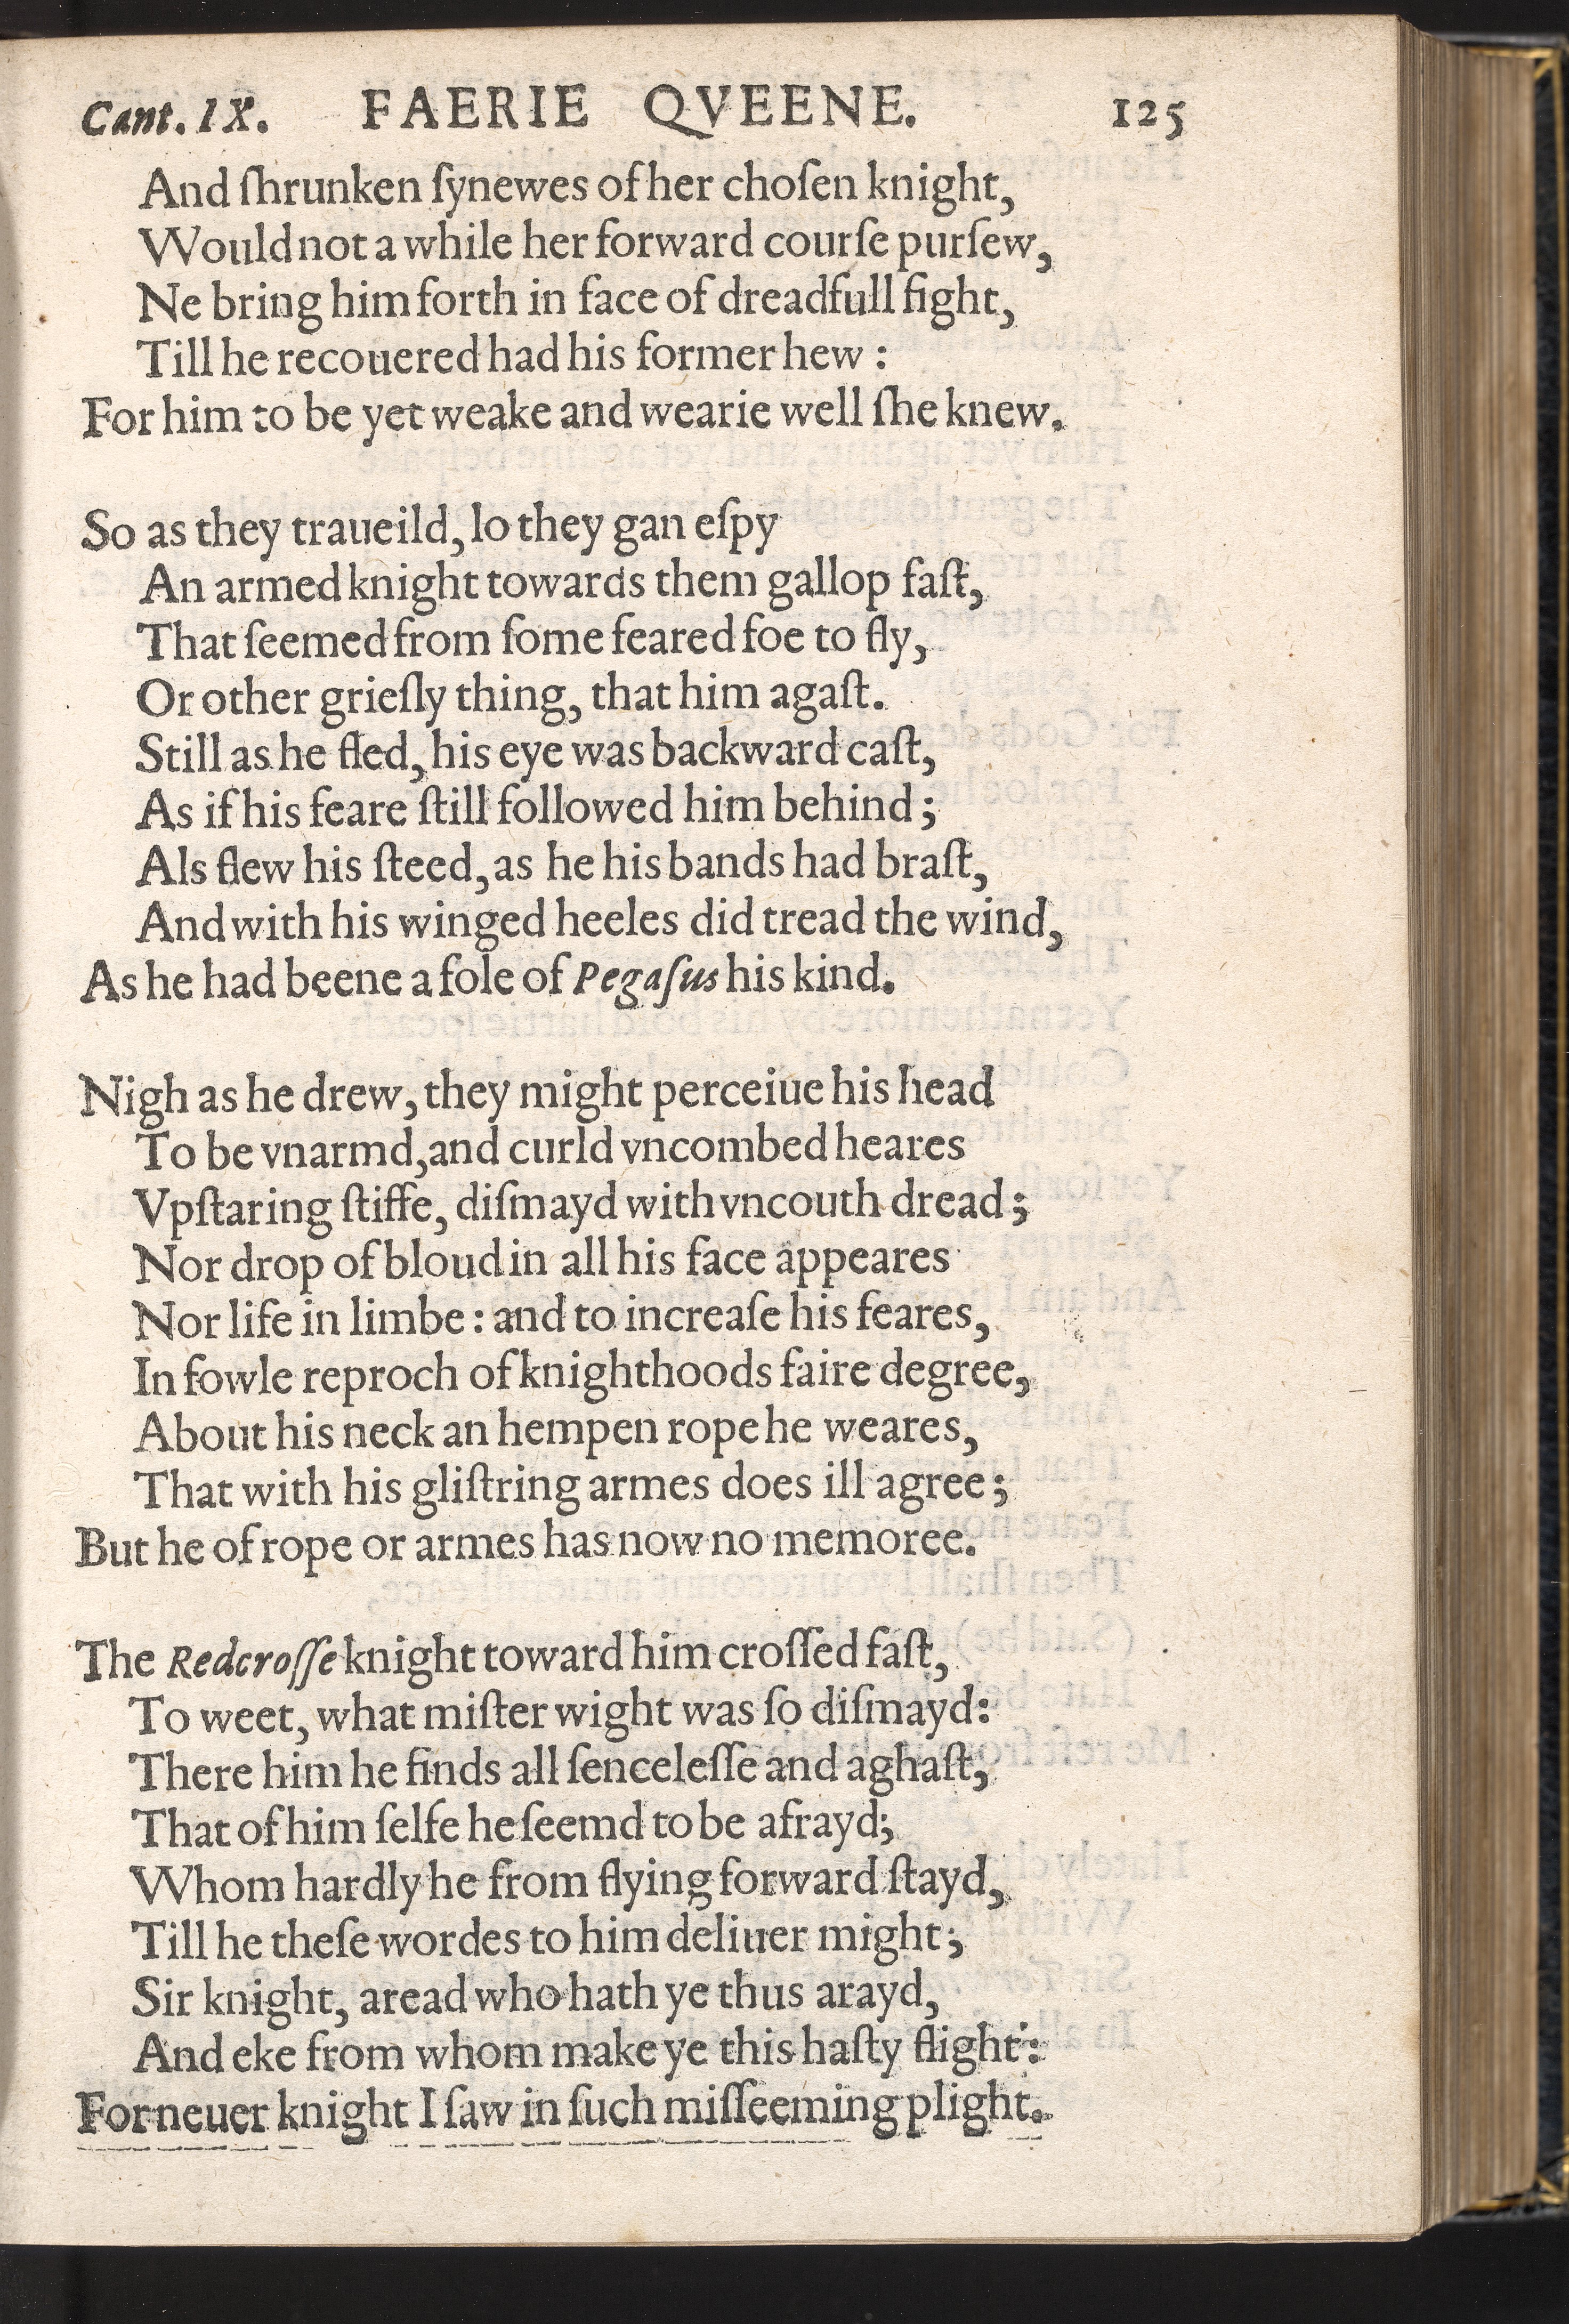 Cant. IX. FAERIE QVEENE. 125
And ſhrunken ſynewes of her choſen knight,
Would not a while her forward courſe purſew,
Ne bring him forth in face of dreadfull fight,
Till he recouered had his former hew :
For him to be yet weake and wearie well ſhe knew.
So as they traueild, lo they gan eſpy
An armed knight towards them gallop faſt,
That ſeemed from ſome feared foe to fly,
Or other grieſly thing, that him agaſt.
Still as he fled, his eye was backward caſt,
As if his feare ſtill followed him behind ;
Als flew his ſteed, as he his bands had braſt,
And with his winged heeles did tread the wind,
As he had beene a fole of Pegaſus his kind.
Nigh as he drew, they might perceiue his head
To be vnarmd, and curld vncombed heares
Vpſtaring ſtiffe, diſmayd with vncouth dread ;
Nor drop of bloud in all his face appeares
Nor life in limbe : and to increaſe his feares,
In fowle reproch of knighthoods faire degree,
About his neck an hempen rope he weares,
That with his gliſtring armes does ill agree ;
But he of rope or armes has now no memoree.
The Redcroſſe knight toward him croſſed faſt,
To weet, what miſter wight was ſo diſmayd:
There him he finds all ſenceleſſe and aghaſt,
That of him ſelfe he ſeemd to be afrayd;
Whom hardly he from flying forward ſtayd,
Till he theſe wordes to him deliuer might ;
Sir knight, aread who hath ye thus arayd,
And eke from whom make ye this haſty flight :
For neuer knight I ſaw in ſuch miſſeeming plight.